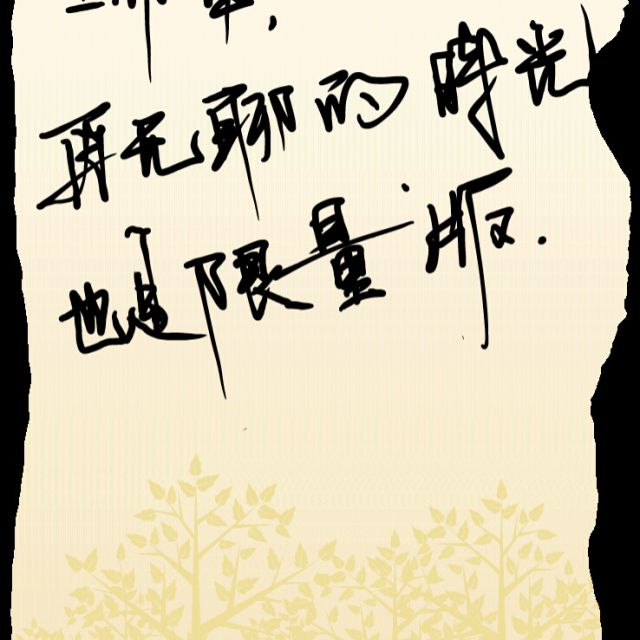 再无聊的时光
也是限量版.